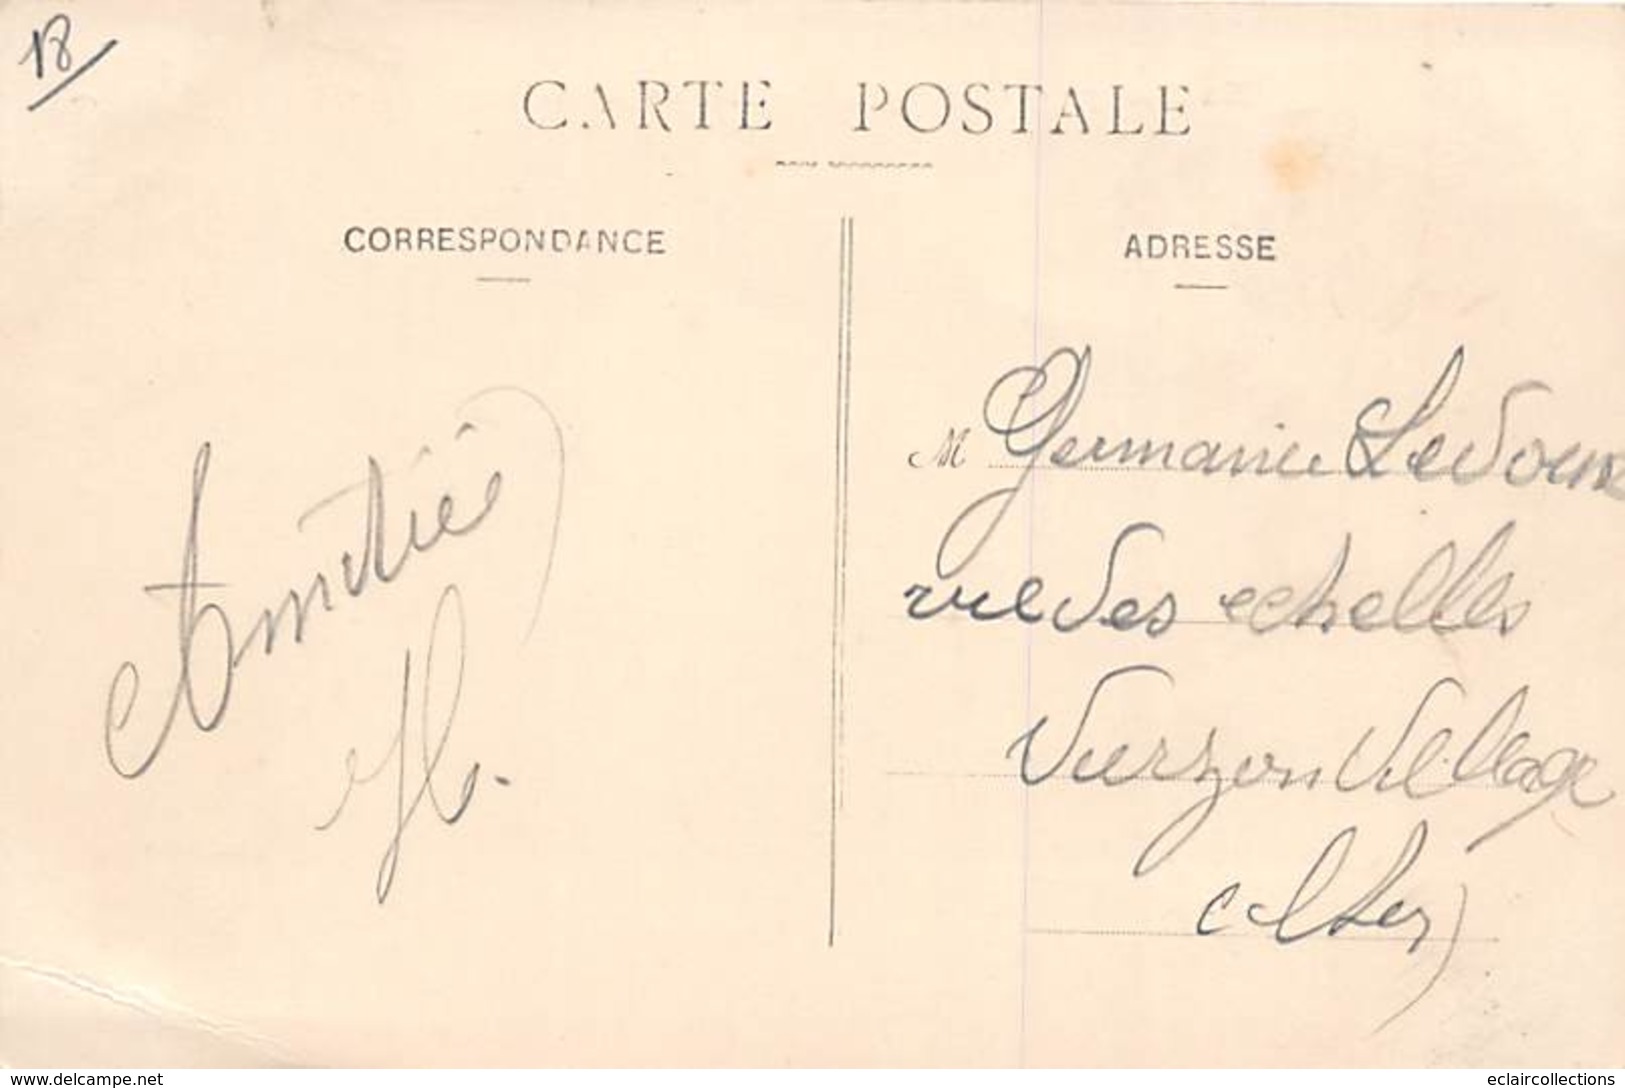 18
CARTE POSTALE
CORRESPONDANCE
ADRESSE
Amitiés
M Germaine Ledoux
rue des echelles
Vierzon Village
Cher
www.delcampe.net
eclaircollections